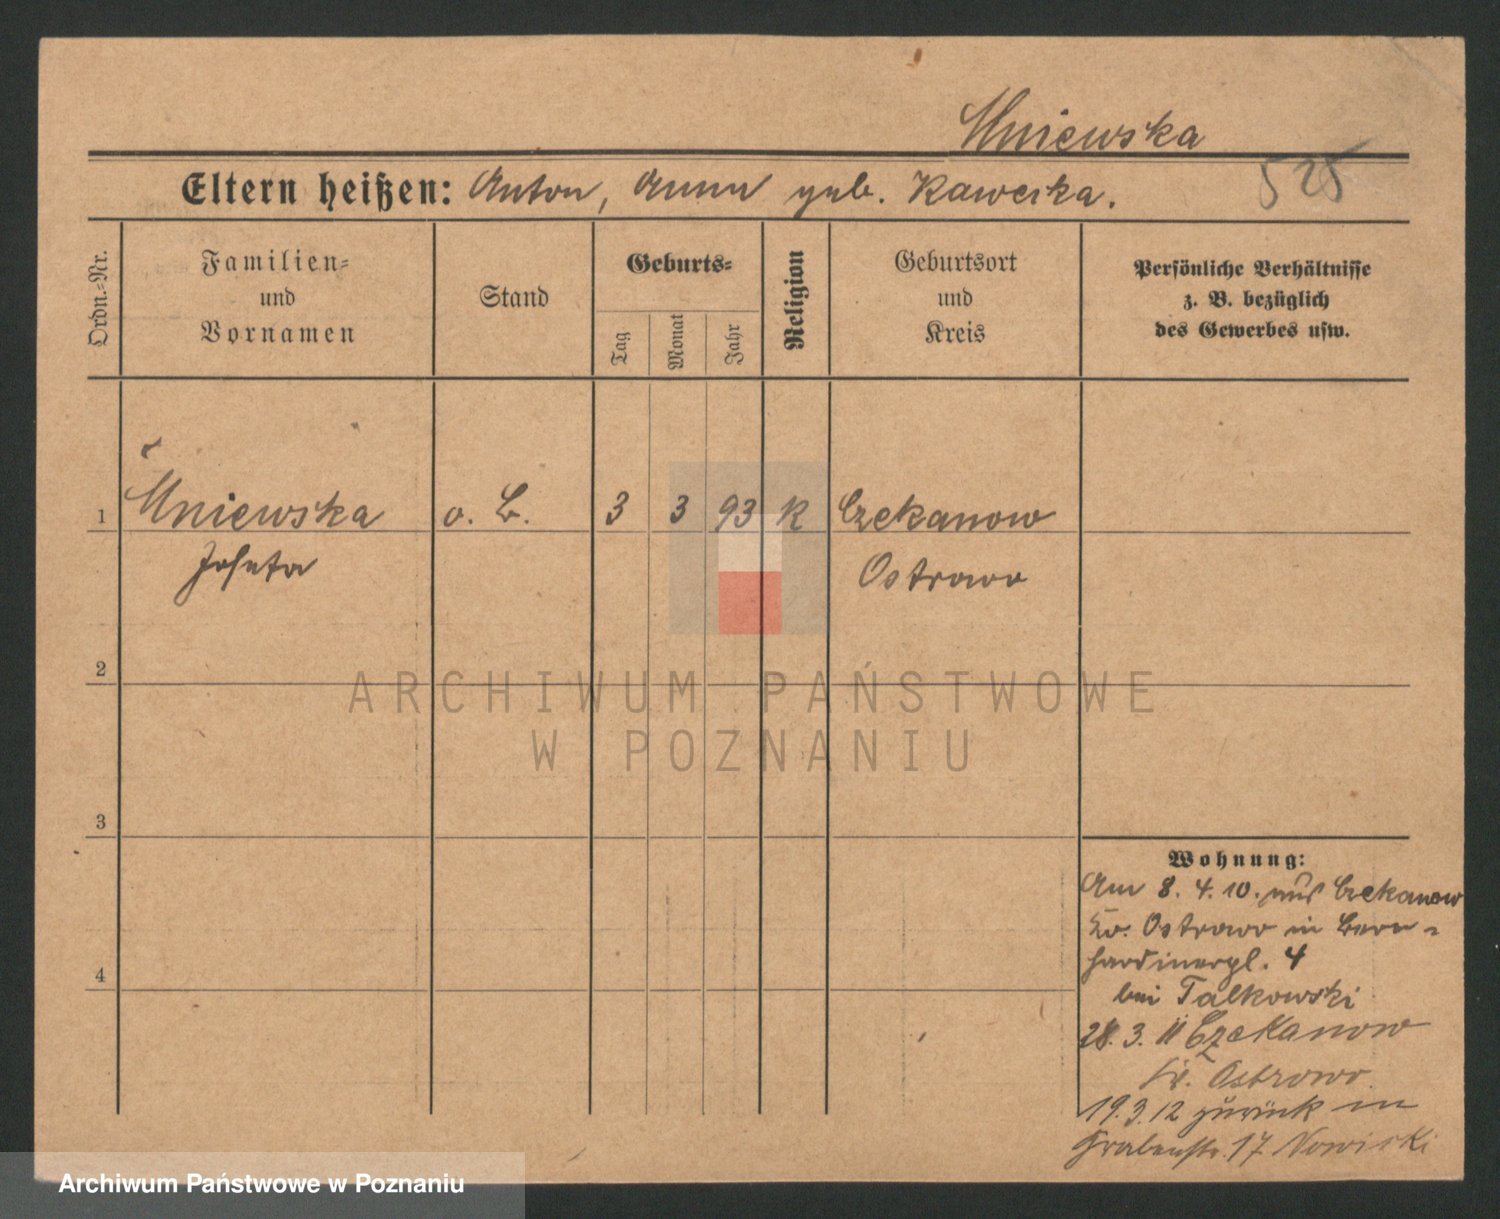 Mniewska
Eltern heißen: Anton, Anna geb. Kawecka.
525
Ordn.-Nr.
Familien-
und
Vornamen
Stand
Geburts-
Tag
Monat
Jahr
Religion
Geburtsort
und
Kreis
Persönliche Verhältnisse
z. B. bezüglich
des Gewerbes usw.
1 Mniewska o. B. 3 3 93 K Czekanow
Josefa Ostrowo
2
3
4
Wohnung:
Am 8. 4. 10. aus Czekanow
Kr. Ostrowo in Bern-
hardinerpl. 4
bei Talkowski
28. 3. 11 Czekanow
Kr. Ostrowo
19. 3. 12 zurück in
Grabenstr. 17 Nowicki
ARCHIWUM PAŃSTWOWE
W POZNANIU
Archiwum Państwowe w Poznaniu